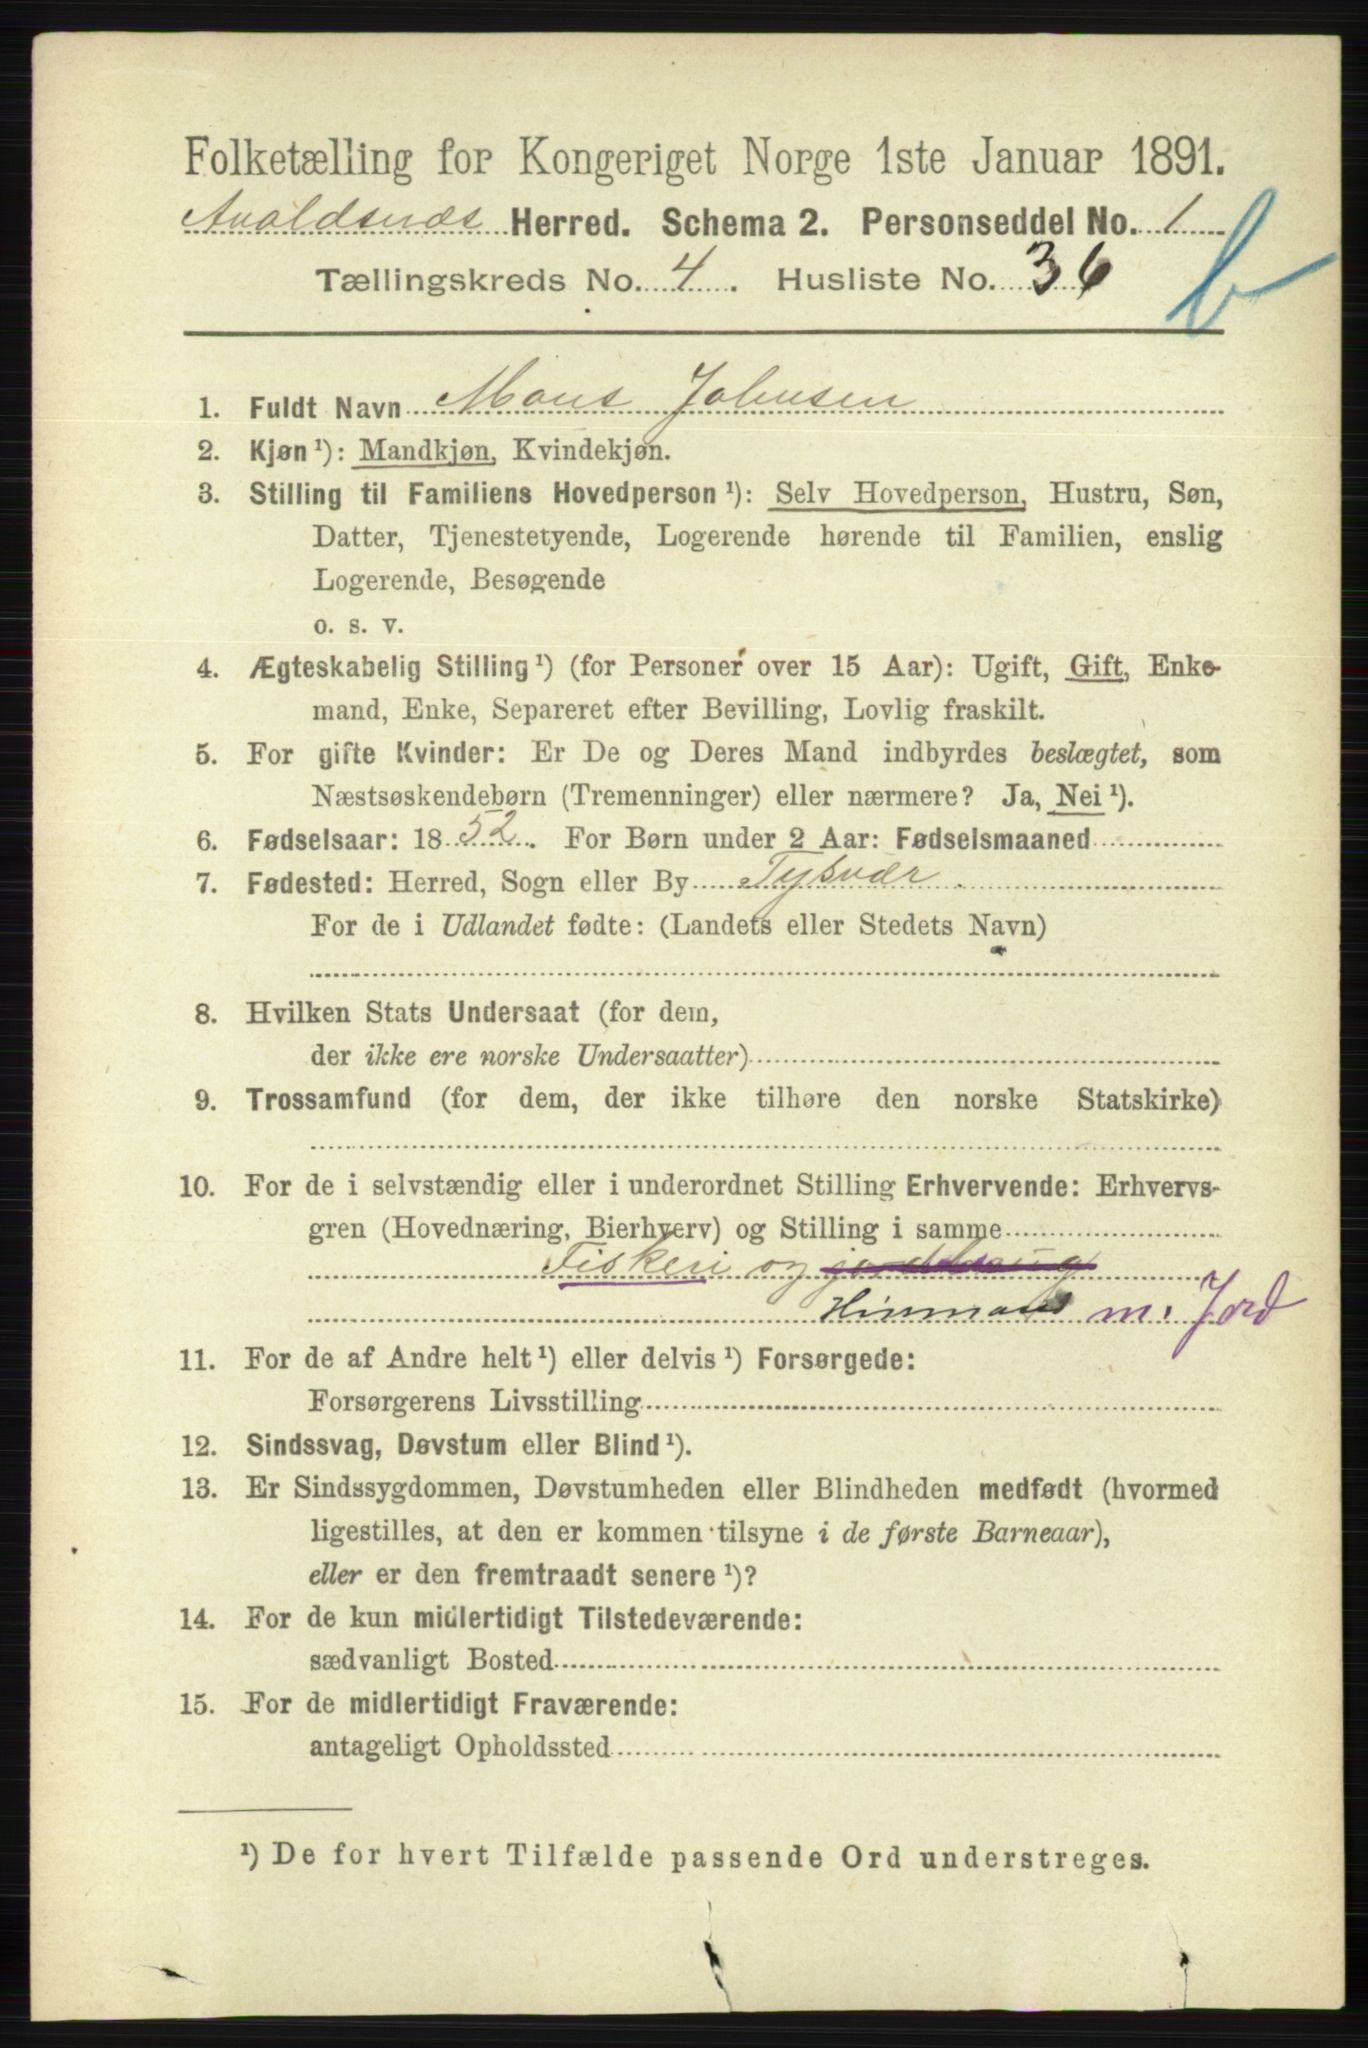 Folketælling for Kongeriget Norge 1ste Januar 1891.
Avaldsnæs Herred. Schema 2. Personseddel No. 1
Tællingskreds No. 4. Husliste No. 36
b
1. Fuldt Navn Mons Johnsen
2. Kjøn ¹): Mandkjøn, Kvindekjøn.
3. Stilling til Familiens Hovedperson ¹): Selv Hovedperson, Hustru, Søn,
Datter, Tjenestetyende, Logerende hørende til Familien, enslig
Logerende, Besøgende
o. s. v.
4. Ægteskabelig Stilling ¹) (for Personer over 15 Aar): Ugift, Gift, Enke-
mand, Enke, Separeret efter Bevilling, Lovlig fraskilt.
5. For gifte Kvinder: Er De og Deres Mand indbyrdes beslægtet, som
Næstsøskendebørn (Tremenninger) eller nærmere? Ja, Nei ¹).
6. Fødselsaar: 1852. For Børn under 2 Aar: Fødselsmaaned
7. Fødested: Herred, Sogn eller By Tysvær
For de i Udlandet fødte: (Landets eller Stedets Navn)
8. Hvilken Stats Undersaat (for dem,
der ikke ere norske Undersaatter)
9. Trossamfund (for dem, der ikke tilhøre den norske Statskirke)
10. For de i selvstændig eller i underordnet Stilling Erhvervende: Erhvervs-
gren (Hovednæring, Bierhverv) og Stilling i samme
Fiskeri og jordbrug
Husmand m. Jord
11. For de af Andre helt ¹) eller delvis ¹) Forsørgede:
Forsørgerens Livsstilling
12. Sindssvag, Døvstum eller Blind ¹).
13. Er Sindssygdommen, Døvstumheden eller Blindheden medfødt (hvormed
ligestilles, at den er kommen tilsyne i de første Barneaar),
eller er den fremtraadt senere ¹)?
14. For de kun midlertidigt Tilstedeværende:
sædvanligt Bosted
15. For de midlertidigt Fraværende:
antageligt Opholdssted
¹) De for hvert Tilfælde passende Ord understreges.